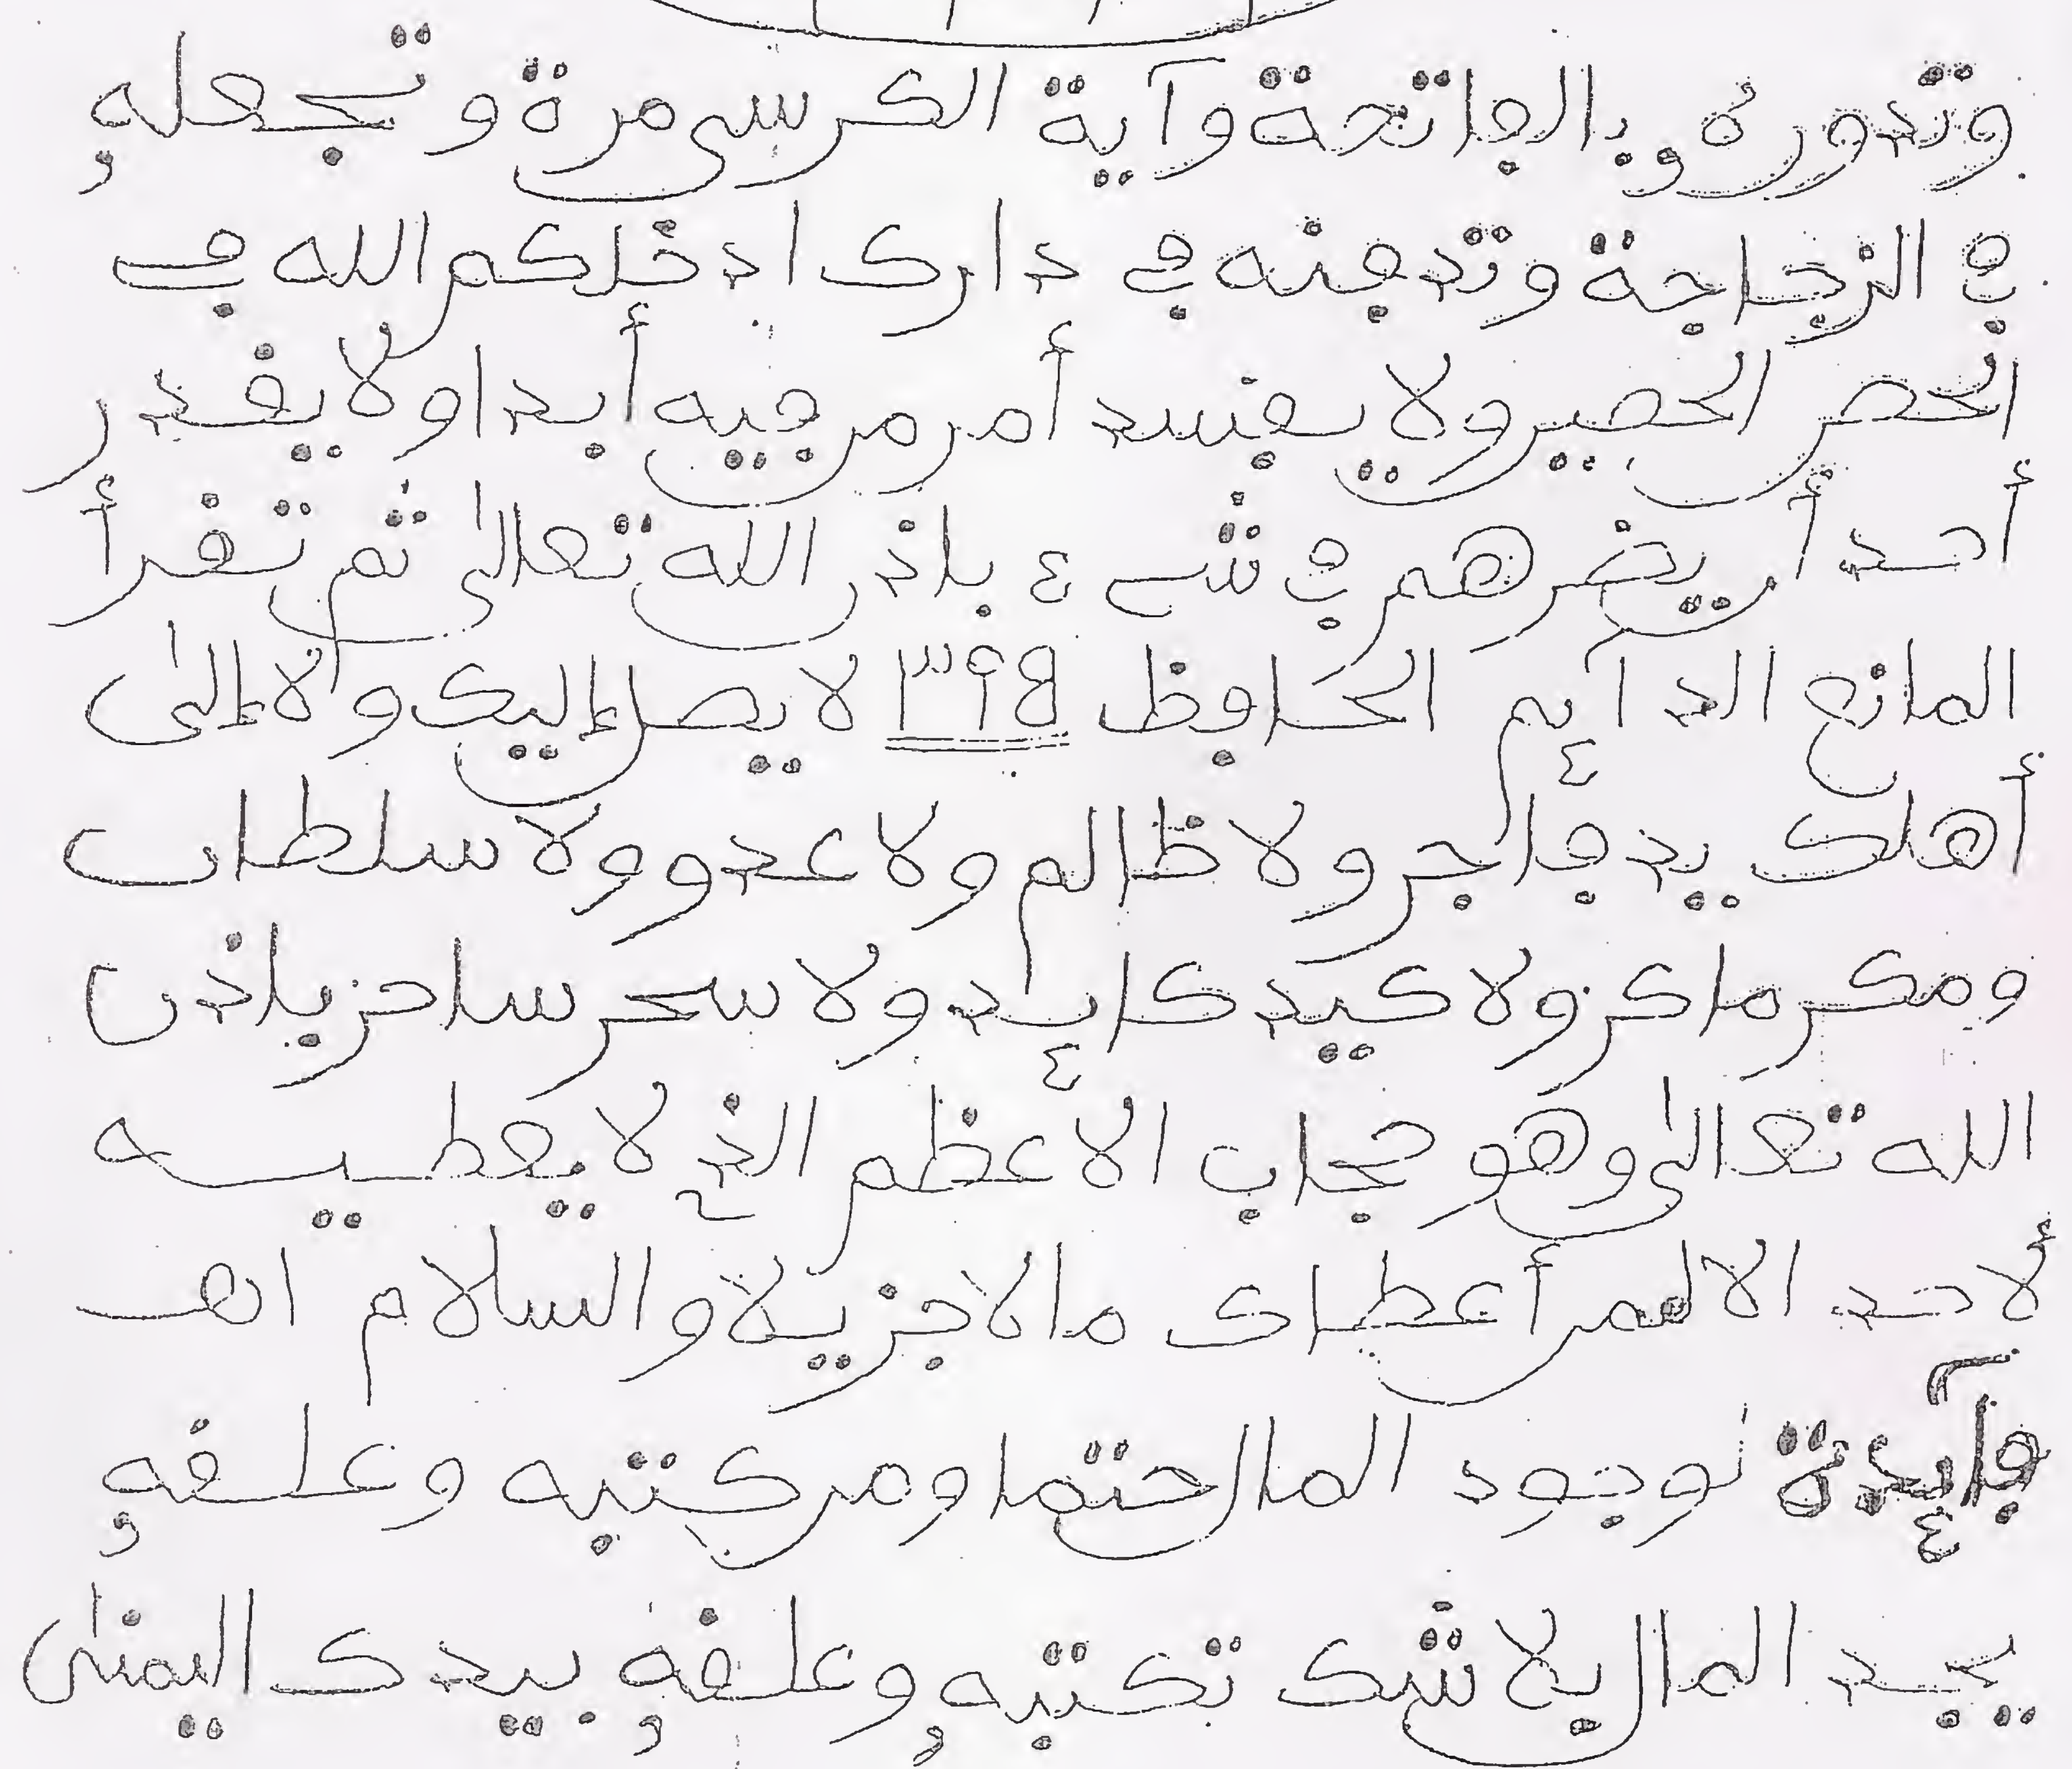 وتدوره وبالفاتحة وآية الكرسي مرة وتجعله
في الزجاجة وتدفنه في دارك ادخلكم الله في
الحصن الحصين ولا يفسد أمر من فيه أبدا ولا يقدر
أحد أن يضرهم في شيء بإذن الله تعالى ثم تقرأ
المانع الدآئم الحافظ ١٣٩٤ لا يصل إليك ولا إلى
أهلك يد فاجر ولا ظالم ولا عدو ولا سلطان
ومكر ماكر ولا كيد كائد ولا سحر ساحر باذن
الله تعالى وهو حجاب الأعظم الذي لا يعطيه
لأحد الا لمن أعطاك مالا جزيلا والسلام اهـ
فآئدة لوجود المال حتما ومن كتبه وعلقه
يجد المال بلا شك تكتبه وعلقه بيدك اليمنى